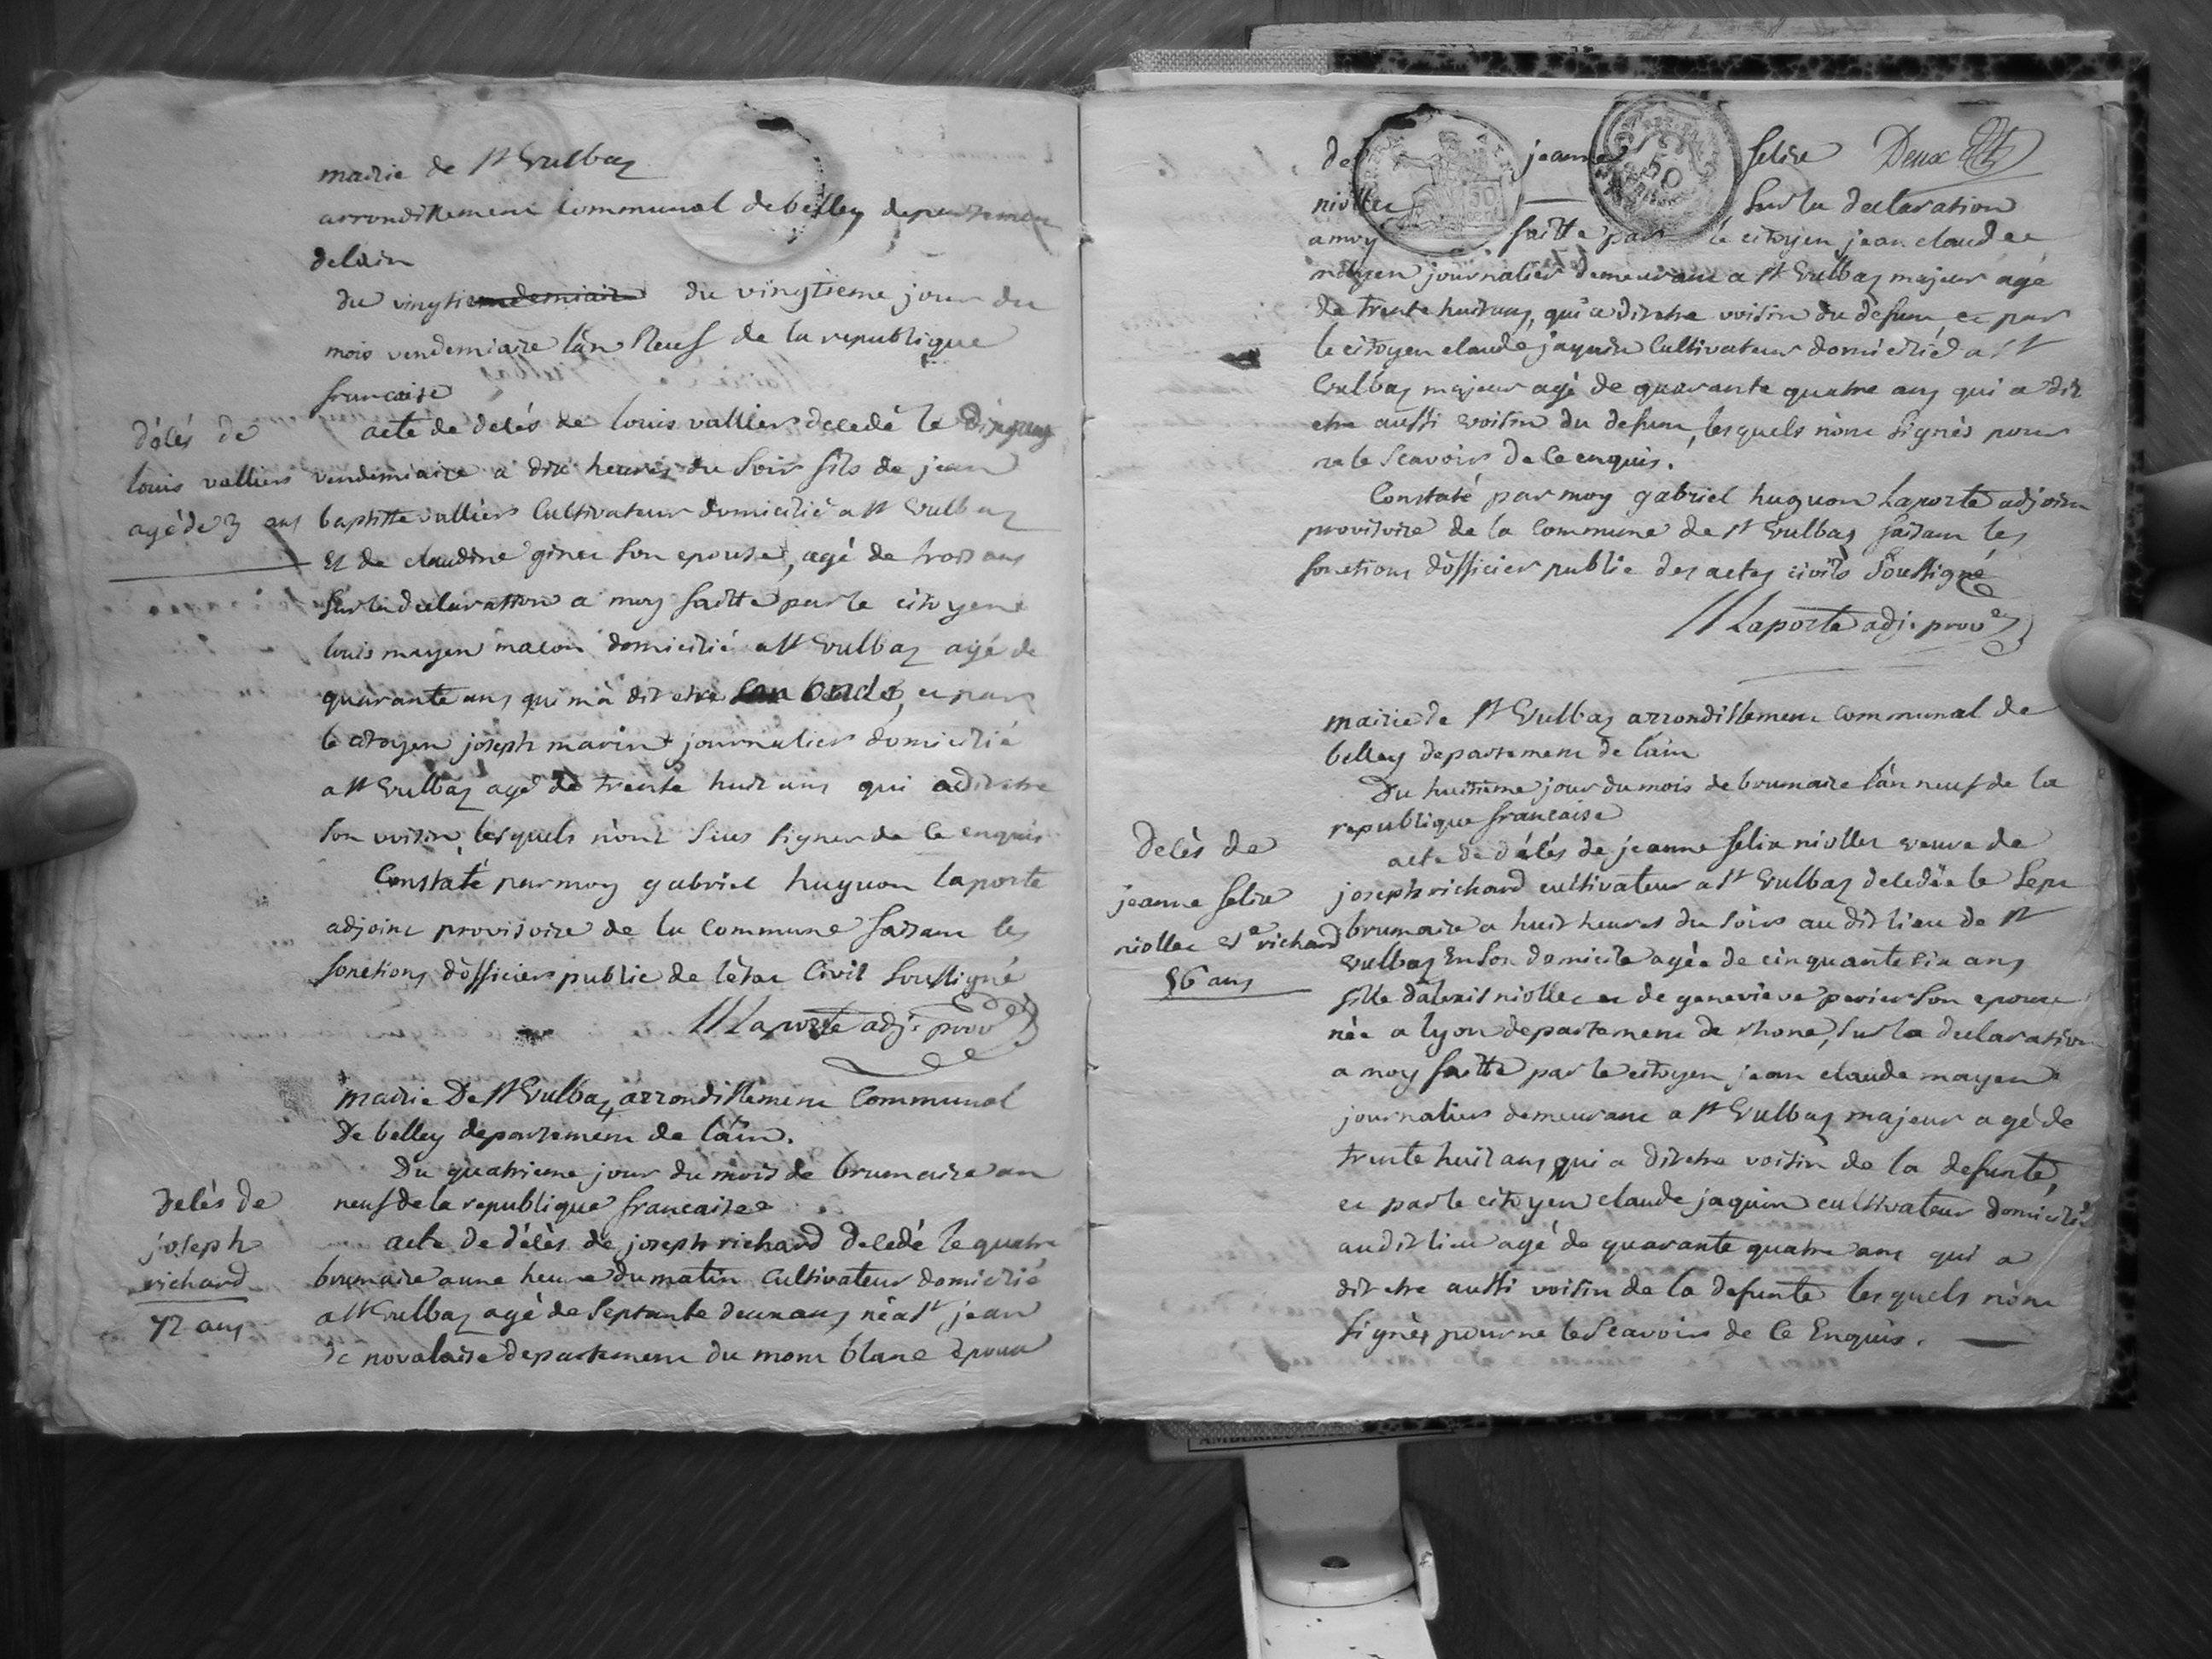 mairie de St Vulbaz
arrondissement communal de belley departement
delain
du vingtiem du vingtieme jour du
mois vendemiaire l'an Neuf de la republique
francaise
décés de
louis valliers
agé de 3 ans
acte de décés de louis valliers decedé le dixneuf
vendemiaire a dix heures du soir fils de jean
baptiste valliers Cultivateur domicilié a St Vulbaz
et de claudine ginet son epouse, agé de trois ans
sur la declaration a moy faitte par le citoyen
louis mayen macon domicilié a St Vulbaz agé de
quarante ans qui m'a dit etre son oncle, et par
le citoyen joseph marin journalier domicilié
a St Vulbaz agé de trente huit ans qui a dit etre
son voisin, lesquels n'ont sçus signer de ce enquis
Constaté par moy gabriel huguon laporte
adjoint provisoire de la commune faisant les
fonctions d'officier public de l'état Civil soussigné
Laporte adj. prov.re
mairie De St Vulbaz arrondissement Communal
De belley departement de l'ain.
Du quatrieme jour du mois de brumaire an
neuf de la republique francaise
Decès de
joseph
richard
72 ans
acte de décès de joseph richard decedé le quatre
brumaire a une heure du matin Cultivateur domicilié
a St Vulbaz agé de septante deux ans, né a St jean
de novalaise departement du mont blanc epoux
de jeanne felixe Deux
niollet sur la declaration
a moy faitte par le citoyen jean claude
mayen journalier demeurant a St Vulbaz majeur agé
de trente huit ans, qui a dit etre voisin du defunt et par
le citoyen claude jaquin Cultivateur domicilié a St
Vulbaz majeur agé de quarante quatre ans qui a dit
etre aussi voisin du defunt, lesquels n'ont signés pour
ne le scavoir de ce enquis.
Constaté par moy gabriel huguon Laporte adjoint
provisoire de la commune de St Vulbaz faisant les
fonctions d'officier public des actes civils soussigné
Laporte adj. prov.re
mairie de St Vulbaz arrondissement communal de
belley departement de l'ain
Du huitieme jour du mois de brumaire l'an neuf de la
republique francaise
Decès de
jeanne felixe
niollet Ve richard
56 ans
acte de décés de jeanne felix niollet veuve de
joseph richard cultivateur a St Vulbaz decedée le sept
brumaire a huit heures du soir au dit lieu de St
Vulbaz En son domicile agée de cinquante six ans
fille d'alexis niollet et de genevieve perier son epouse
née a lyon departement de rhone, sur la declaration
a moy faitte par le citoyen jean claude mayen
journalier demeurant a St Vulbaz majeur agé de
trente huit ans qui a dit etre voisin de la defunte,
et par le citoyen claude jaquin cultivateur domicilié
au dit lieu agé de quarante quatre ans qui a
dit etre aussi voisin de la defunte lesquels n'ont
signés pour ne le scavoir de ce Enquis.